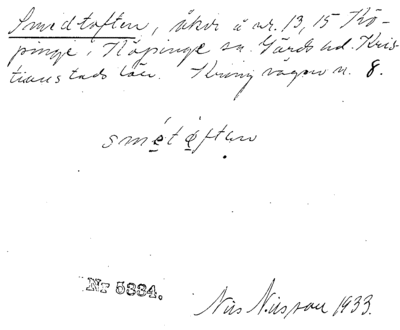 Smedtoften, åker å nr. 13, 15 Kö-
pinge i Köpinge sn. Gärds hd. Kris-
tianstads län. Kring vägen n. 8.
smétǫ́ften
Nr 5884.
Nils Nilsson 1933.